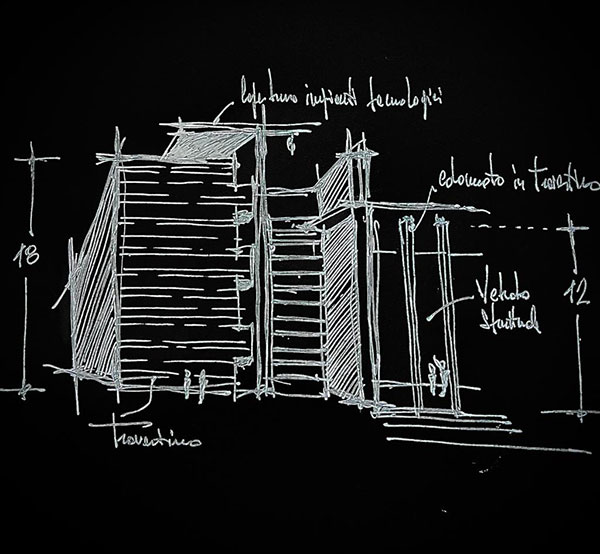 Copertura impianti tecnologici
colonnato in travertino
18
12
Vetrata
travertino